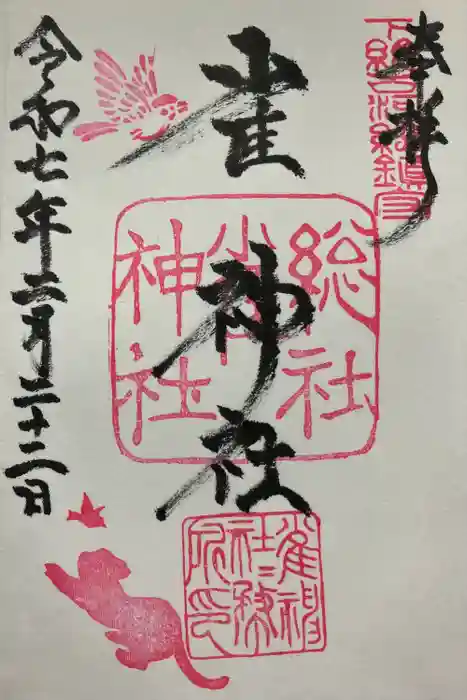 奉拝
下総国古河鎮守
雀神社
総社
雀宮
神社
雀神社社務所印
令和七年二月二十二日